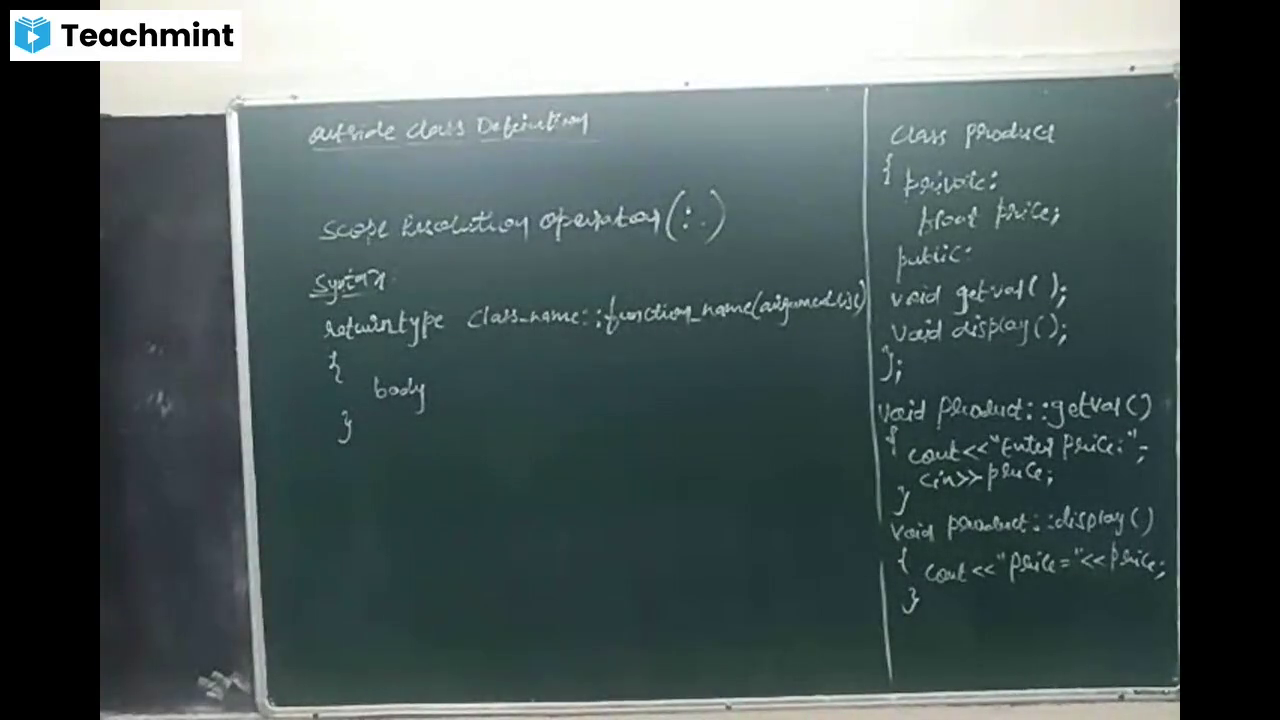 Teachmint
outside class Definition
Scope Resolution operator (::)
Syntax
returntype class_name::function_name(argument list)
{
body
}
class product
{ private:
float price;
public:
void getval();
void display();
};
void product::getval()
{ cout<<"Enter price:";
cin>>price;
}
void product::display()
{ cout<<"price="<<price;
}